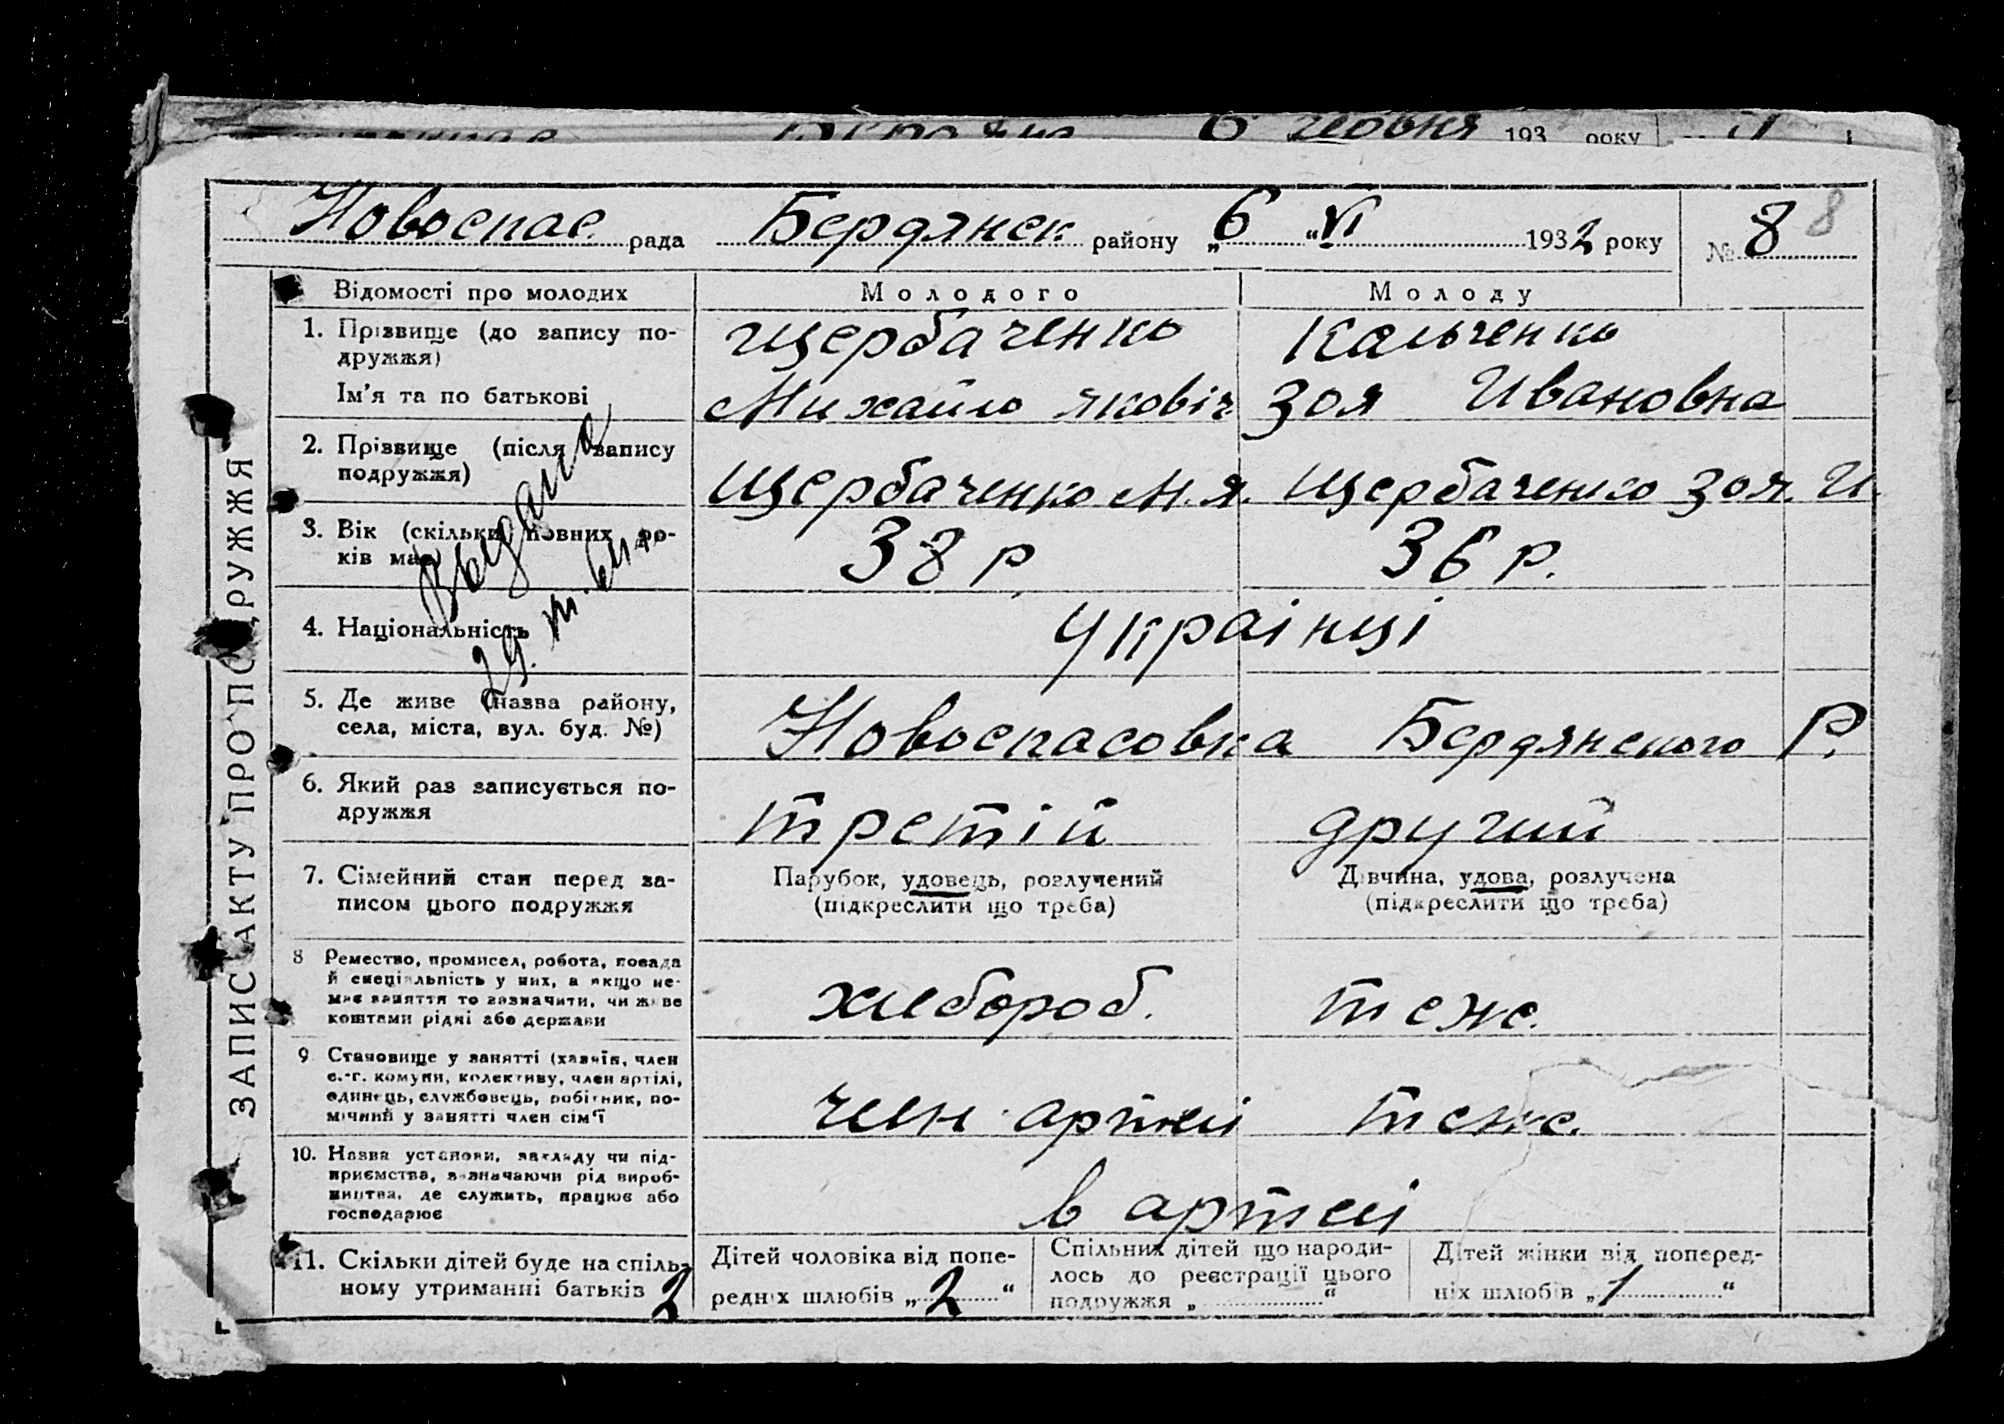 6 червня 193 року
Новоспас. рада Бердянск району „6“ VI 1932 року № 8 8
ЗАПИС АКТУ ПРО ПОДРУЖЖЯ
Відомості про молодих Молодого Молоду
1. Прізвище (до запису по- Щербаченко Кальченко
дружжя)
Ім'я та по батькові Михайло Яковіч Зоя Ивановна
2. Прізвище (після запису
подружжя) Щербаченко М.Я. Щербаченко Зоя И.
3. Вік (скільки повних ро-
ків має) 38 р 36 р.
Выдано
29.
4. Національність Українці
5. Де живе (назва району,
села, міста, вул. буд. №) Новоспасовка Бердянского Р.
6. Який раз записується по-
дружжя третій другий
7. Сімейний стан перед за- Парубок, удовець, розлучений Дівчина, удова, розлучена
писом цього подружжя (підкреслити що треба) (підкреслити що треба)
8 Ремество, промисел, робота, посада
й спеціяльність у них, а якщо не-
має заняття то зазначити, чи живе хлебороб. теже.
коштами рідні або держави
9 Становище у занятті (хазяїн, член
с.-г. комуни, колективу, член артілі,
одинець, службовець, робітник, по- член артелі теже.
мічний у занятті член сім'ї
10. Назва установи, закладу чи під-
приємства, зазначаючи рід вироб-
ництва, де служить, працює або в артелі
господарює
11. Скільки дітей буде на спіль- Дітей чоловіка від попе- Спільних дітей що народи- Дітей жінки від поперед-
ному утриманні батьків 2 редніх шлюбів „2“ лось до реєстрації цього ніх шлюбів „1“
подружжя „ “